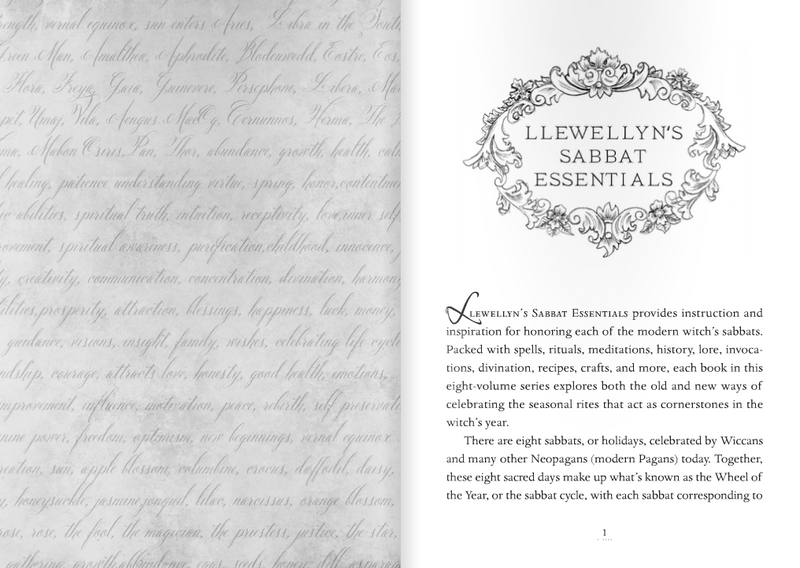 rength, vernal equinox, sun enters Aries, Libra in the South
Green Man, Amalthea, Aphrodite, Blodeuwedd, Eostre, Eos,
Flora, Freya, Gaia, Guinevere, Persephone, Libera, Ma
pet, Umay, Vila, Aengus MacOg, Cernunnos, Herma, The D
ma, Mabon Osiris, Pan, Thor, abundance, growth, health, cal
healing, patience understanding virtue, spring, honor, contentment
ic abilities, spiritual truth, intuition, receptivity, love, inner self
rovement, spiritual awareness, purification, childhood, innocence,
ty, creativity, communication, concentration, divination, harmony
ilities, prosperity, attraction, blessings, happiness, luck, money,
guidance, visions, insight, family, wishes, celebrating life cycle
ndship, courage, attracts love, honesty, good health, emotions,
improvement, influence, motivation, peace, rebirth, self preservati
nine power, freedom, optimism, new beginnings, vernal equinox
reation, sun, apple blossom, columbine, crocus, daffodil, daisy,
y, honeysuckle, jasmine, jonquil, lilac, narcissus, orange blossom,
rose, rose, the fool, the magician, the priestess, justice, the star,
gathering, growth, abundance, eggs, seeds, honey, dill, asparag
LLEWELLYN'S
SABBAT
ESSENTIALS
LLEWELLYN'S SABBAT ESSENTIALS provides instruction and
inspiration for honoring each of the modern witch's sabbats.
Packed with spells, rituals, meditations, history, lore, invoca-
tions, divination, recipes, crafts, and more, each book in this
eight-volume series explores both the old and new ways of
celebrating the seasonal rites that act as cornerstones in the
witch's year.
There are eight sabbats, or holidays, celebrated by Wiccans
and many other Neopagans (modern Pagans) today. Together,
these eight sacred days make up what's known as the Wheel of
the Year, or the sabbat cycle, with each sabbat corresponding to
1